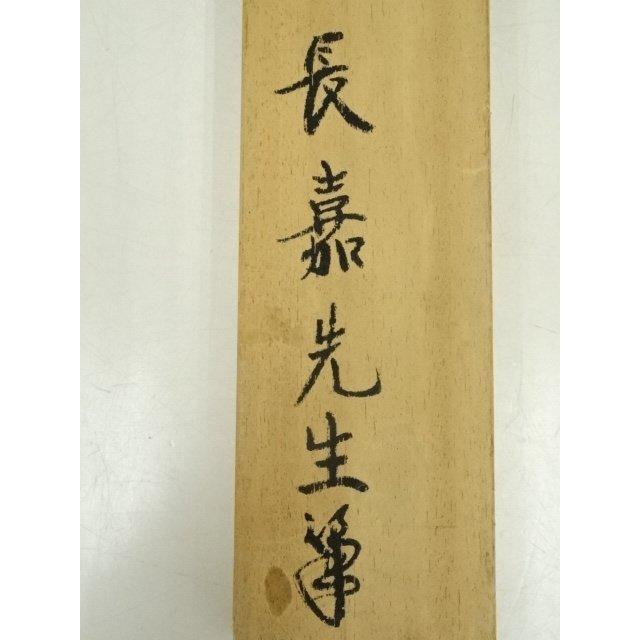 長嘉先生筆